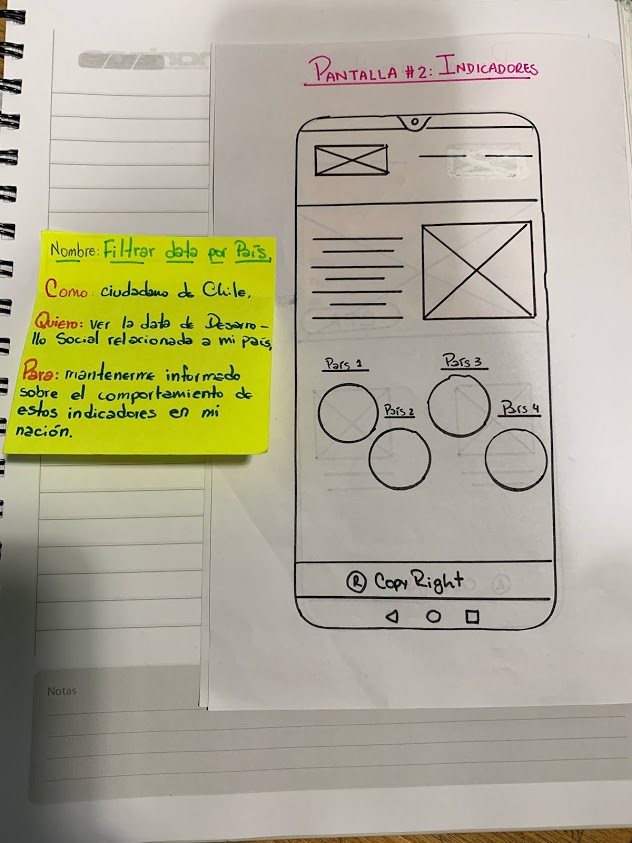 PANTALLA #2: INDICADORES
Nombre: Filtrar data por País.
Como: ciudadano de Chile,
Quiero: ver la data de Desarro-
llo Social relacionada a mi país,
Para: mantenerme informado
sobre el comportamiento de
estos indicadores en mi
nación.
País 1
País 2
País 3
País 4
® CopyRight
Notas